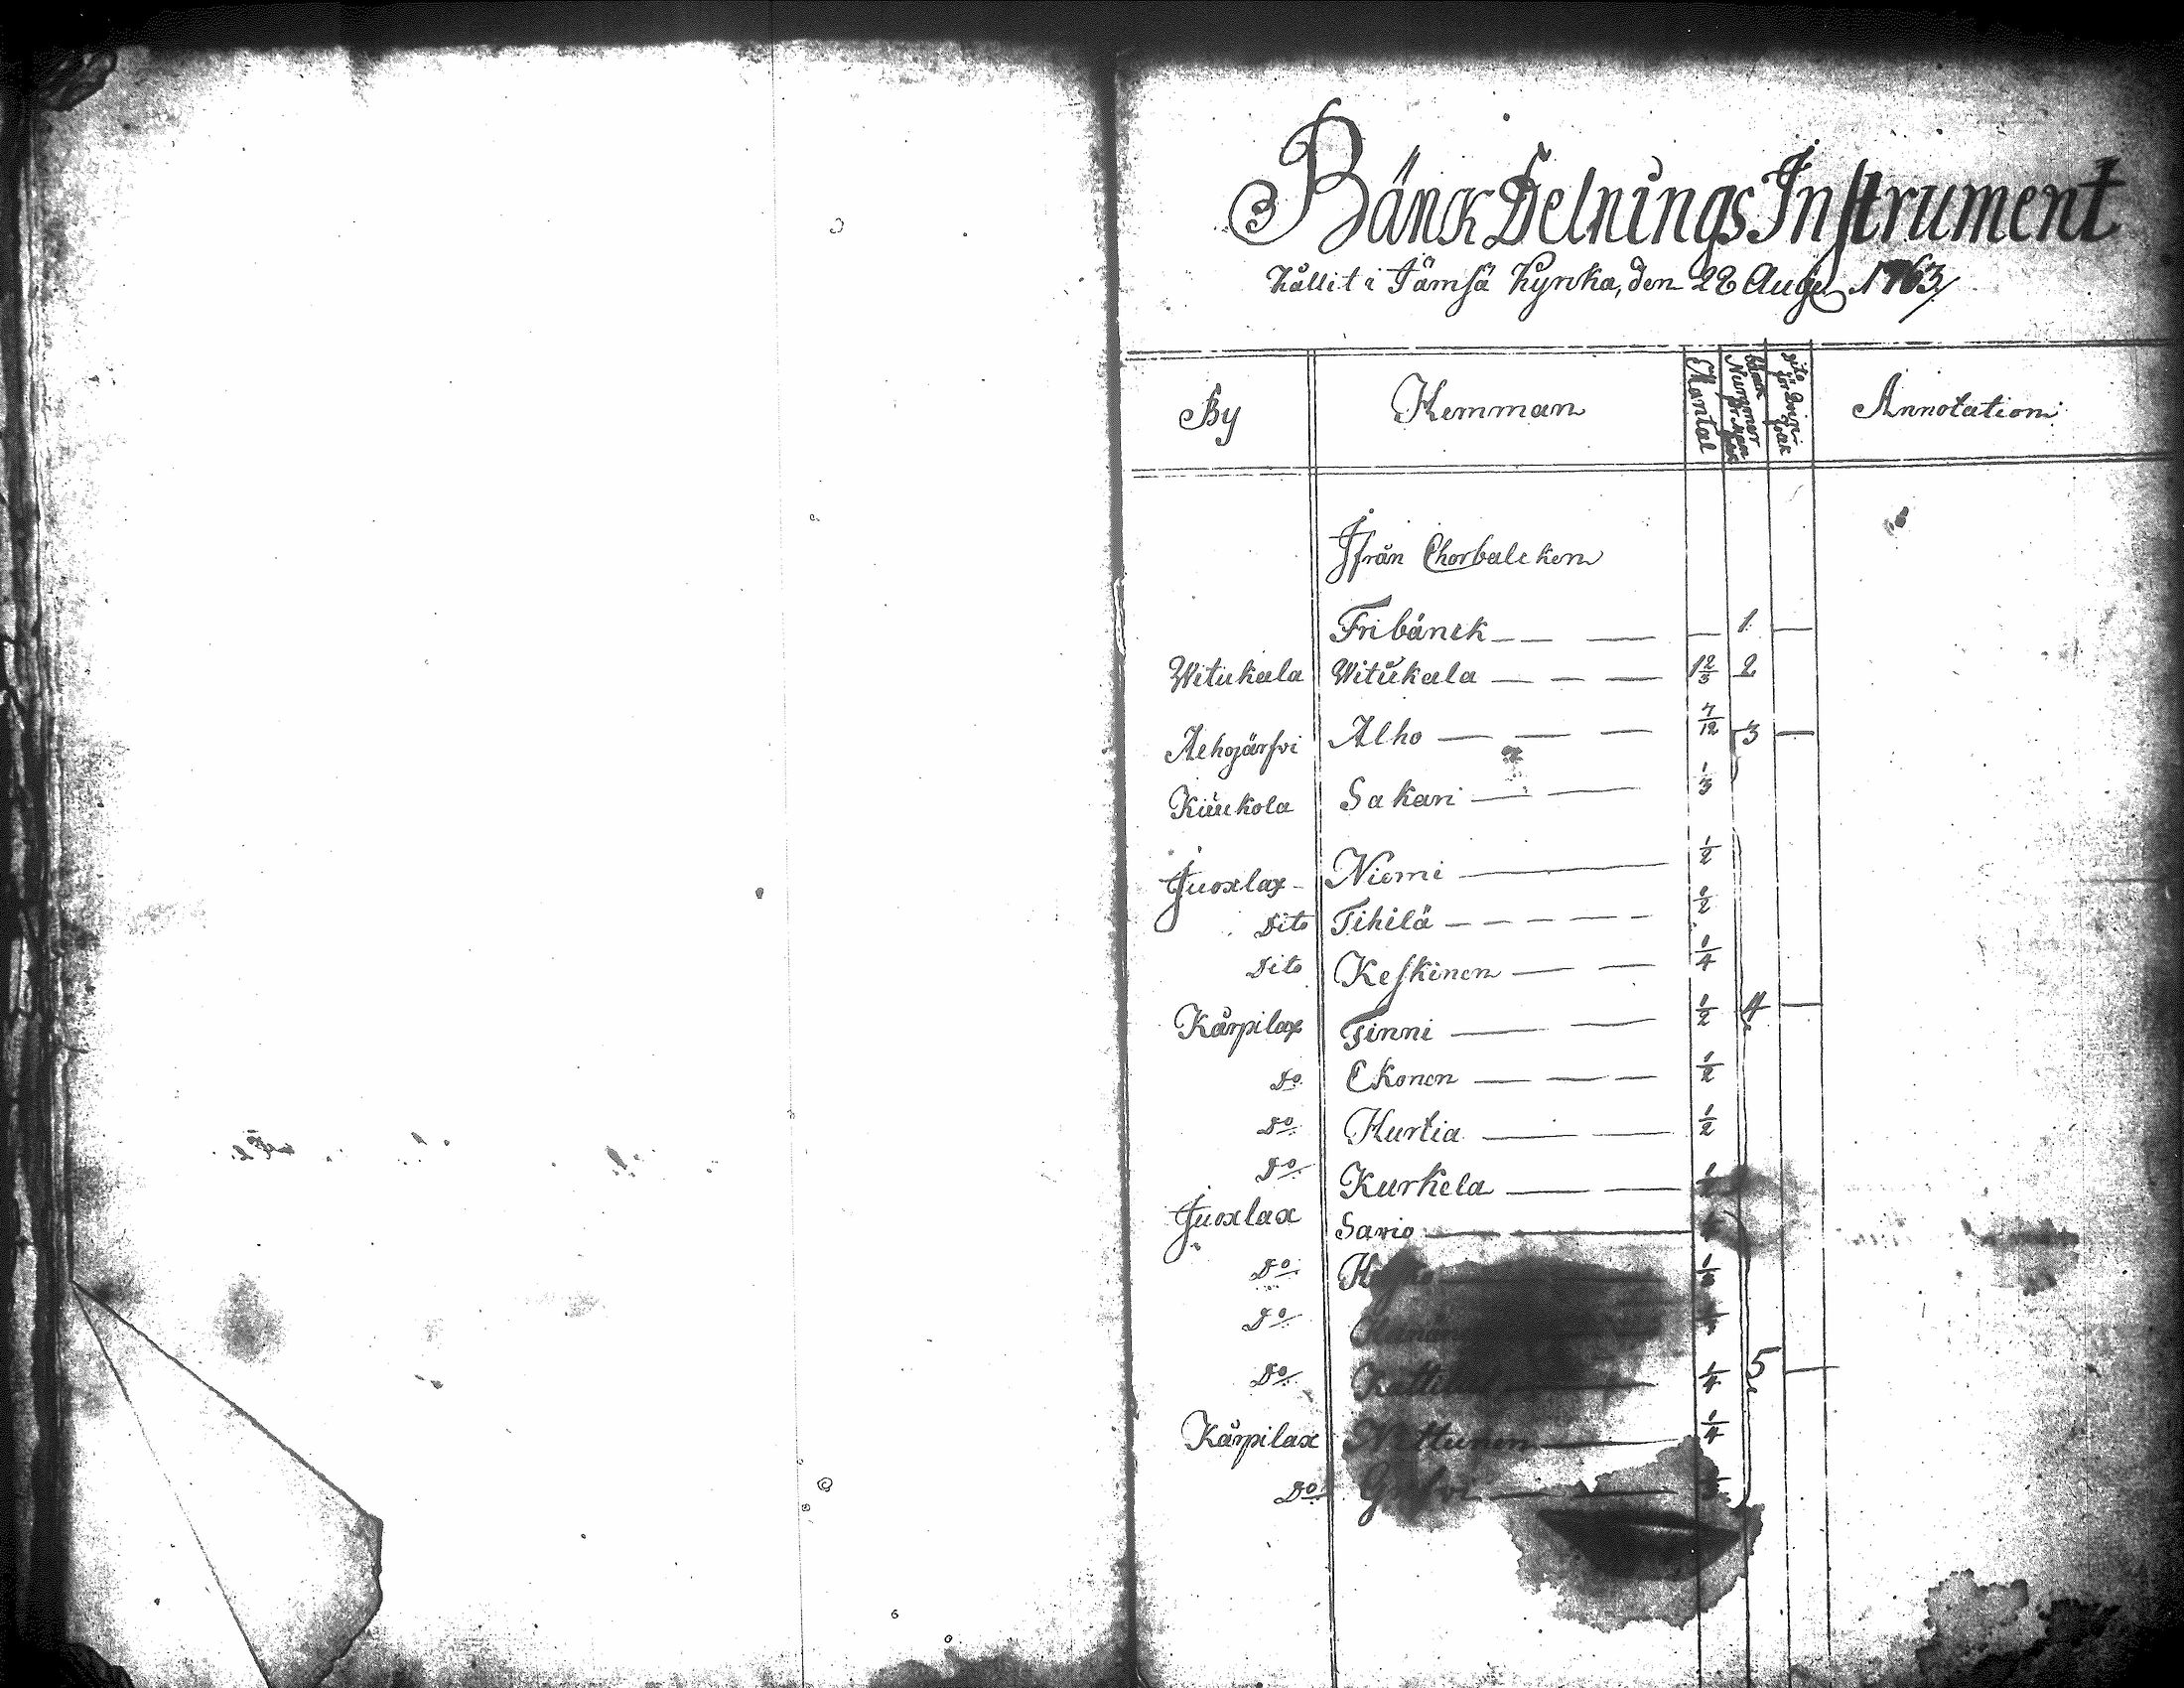 Bänck Delnings Instrument
hållit i Jämsä Kyrka, den 22 Aug. 1763
By Hemman Mantal Annotation
Ifrån Chorbalcken
Fribänck 1
Witukala Witukala 1 2/3 2
Alhojärfvi Alho 7/12 3
Kiukola Sakari 1/3
Juoxlax Niemi 1/2
Dito Tihilä 1/2
Dito Keskinen 1/4
Kårpilax Finni 1/2 4
Do Ekonen 1/2
Do Hurtia 1/2
Do Kurkela
Juoxlax Sario
Do
Do
Do 1/4 5
Kårpilax Nittunen 1/4
Do